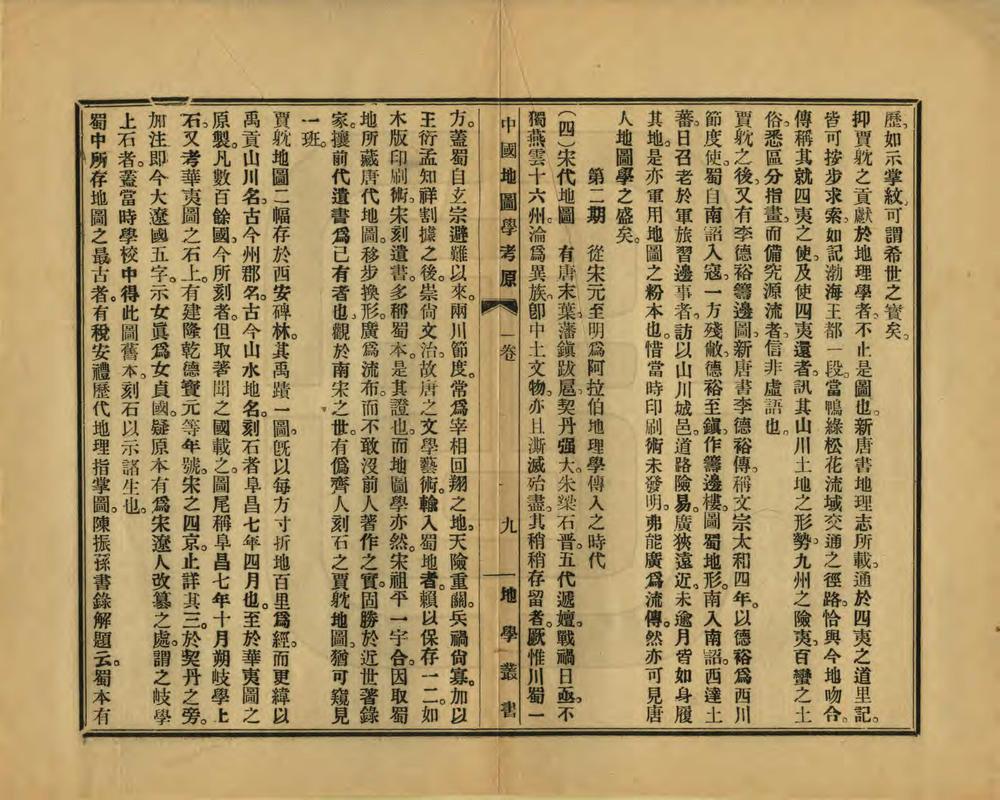 歷。如示掌紋。可謂希世之寶矣。
抑賈躭之貢獻於地理學者。不止是圖也。新唐書地理志所載。通於四夷之道里記。
皆可按步求索。如記渤海王都一段。當鴨綠松花流域交通之徑路。恰與今地吻合。
傳稱其就四夷之使。及使四夷還者。訊其山川土地之形勢。九州之險夷。百蠻之土
俗。悉區分指畫。而備究源流者。信非虛語也。
賈躭之後。又有李德裕籌邊圖。新唐書李德裕傳。稱文宗太和四年。以德裕爲西川
節度使。蜀自南詔入寇。一方殘敝。德裕至鎭。作籌邊樓。圖蜀地形。南入南詔。西達土
蕃。日召老於軍旅習邊事者。訪以山川城邑。道路險易。廣狹遠近。未逾月。皆如身履
其地。是亦軍用地圖之粉本也。惜當時印刷術未發明。弗能廣爲流傳。然亦可見唐
人地圖學之盛矣。
第二期　從宋元至明爲阿拉伯地理學傳入之時代
(四)宋代地圖　有唐末葉。藩鎭跋扈。契丹强大。朱梁石晋。五代遞嬗。戰禍日亟。不
獨燕雲十六州。淪爲異族。卽中土文物。亦且澌滅殆盡。其稍稍存留者。厥惟川蜀一
中國地圖學考原　卷一　九　地學叢書
方。蓋蜀自玄宗避難以來。兩川節度。常爲宰相回翔之地。天險重關。兵禍尙寡。加以
王衍孟知祥割據之後。崇尙文治。故唐之文學藝術。輸入蜀地者。賴以保存一二。如
木版印刷術。宋刻遺書。多稱蜀本。是其證也。而地圖學亦然。宋祖平一宇合。因取蜀
地所藏唐代地圖。移步換形。廣爲流布。而不敢沒前人著作之實。固勝於近世著錄
家。攘前代遺書爲己有者也。觀於南宋之世。有僞齊人刻石之賈躭地圖。猶可窺見
一班。
賈躭地圖二幅。存於西安碑林。其禹蹟一圖。旣以每方寸折地百里爲經。而更緯以
禹貢山川名。古今州郡名。古今山水地名。刻石者阜昌七年四月也。至於華夷圖之
原製。凡數百餘國。今所刻者。但取著聞之國載之。圖尾稱阜昌七年十月朔岐學上
石。又考華夷圖之石上。有建隆乾德寶元等年號。宋之四京。止詳其三。於契丹之旁。
加注卽今大遼國五字。示女眞爲女貞國。疑原本有爲宋遼人改纂之處。謂之岐學
上石者。蓋當時學校中得此圖舊本。刻石以示諸生也。
蜀中所存地圖之最古者。有稅安禮歷代地理指掌圖。陳振孫書錄解題云。蜀本有